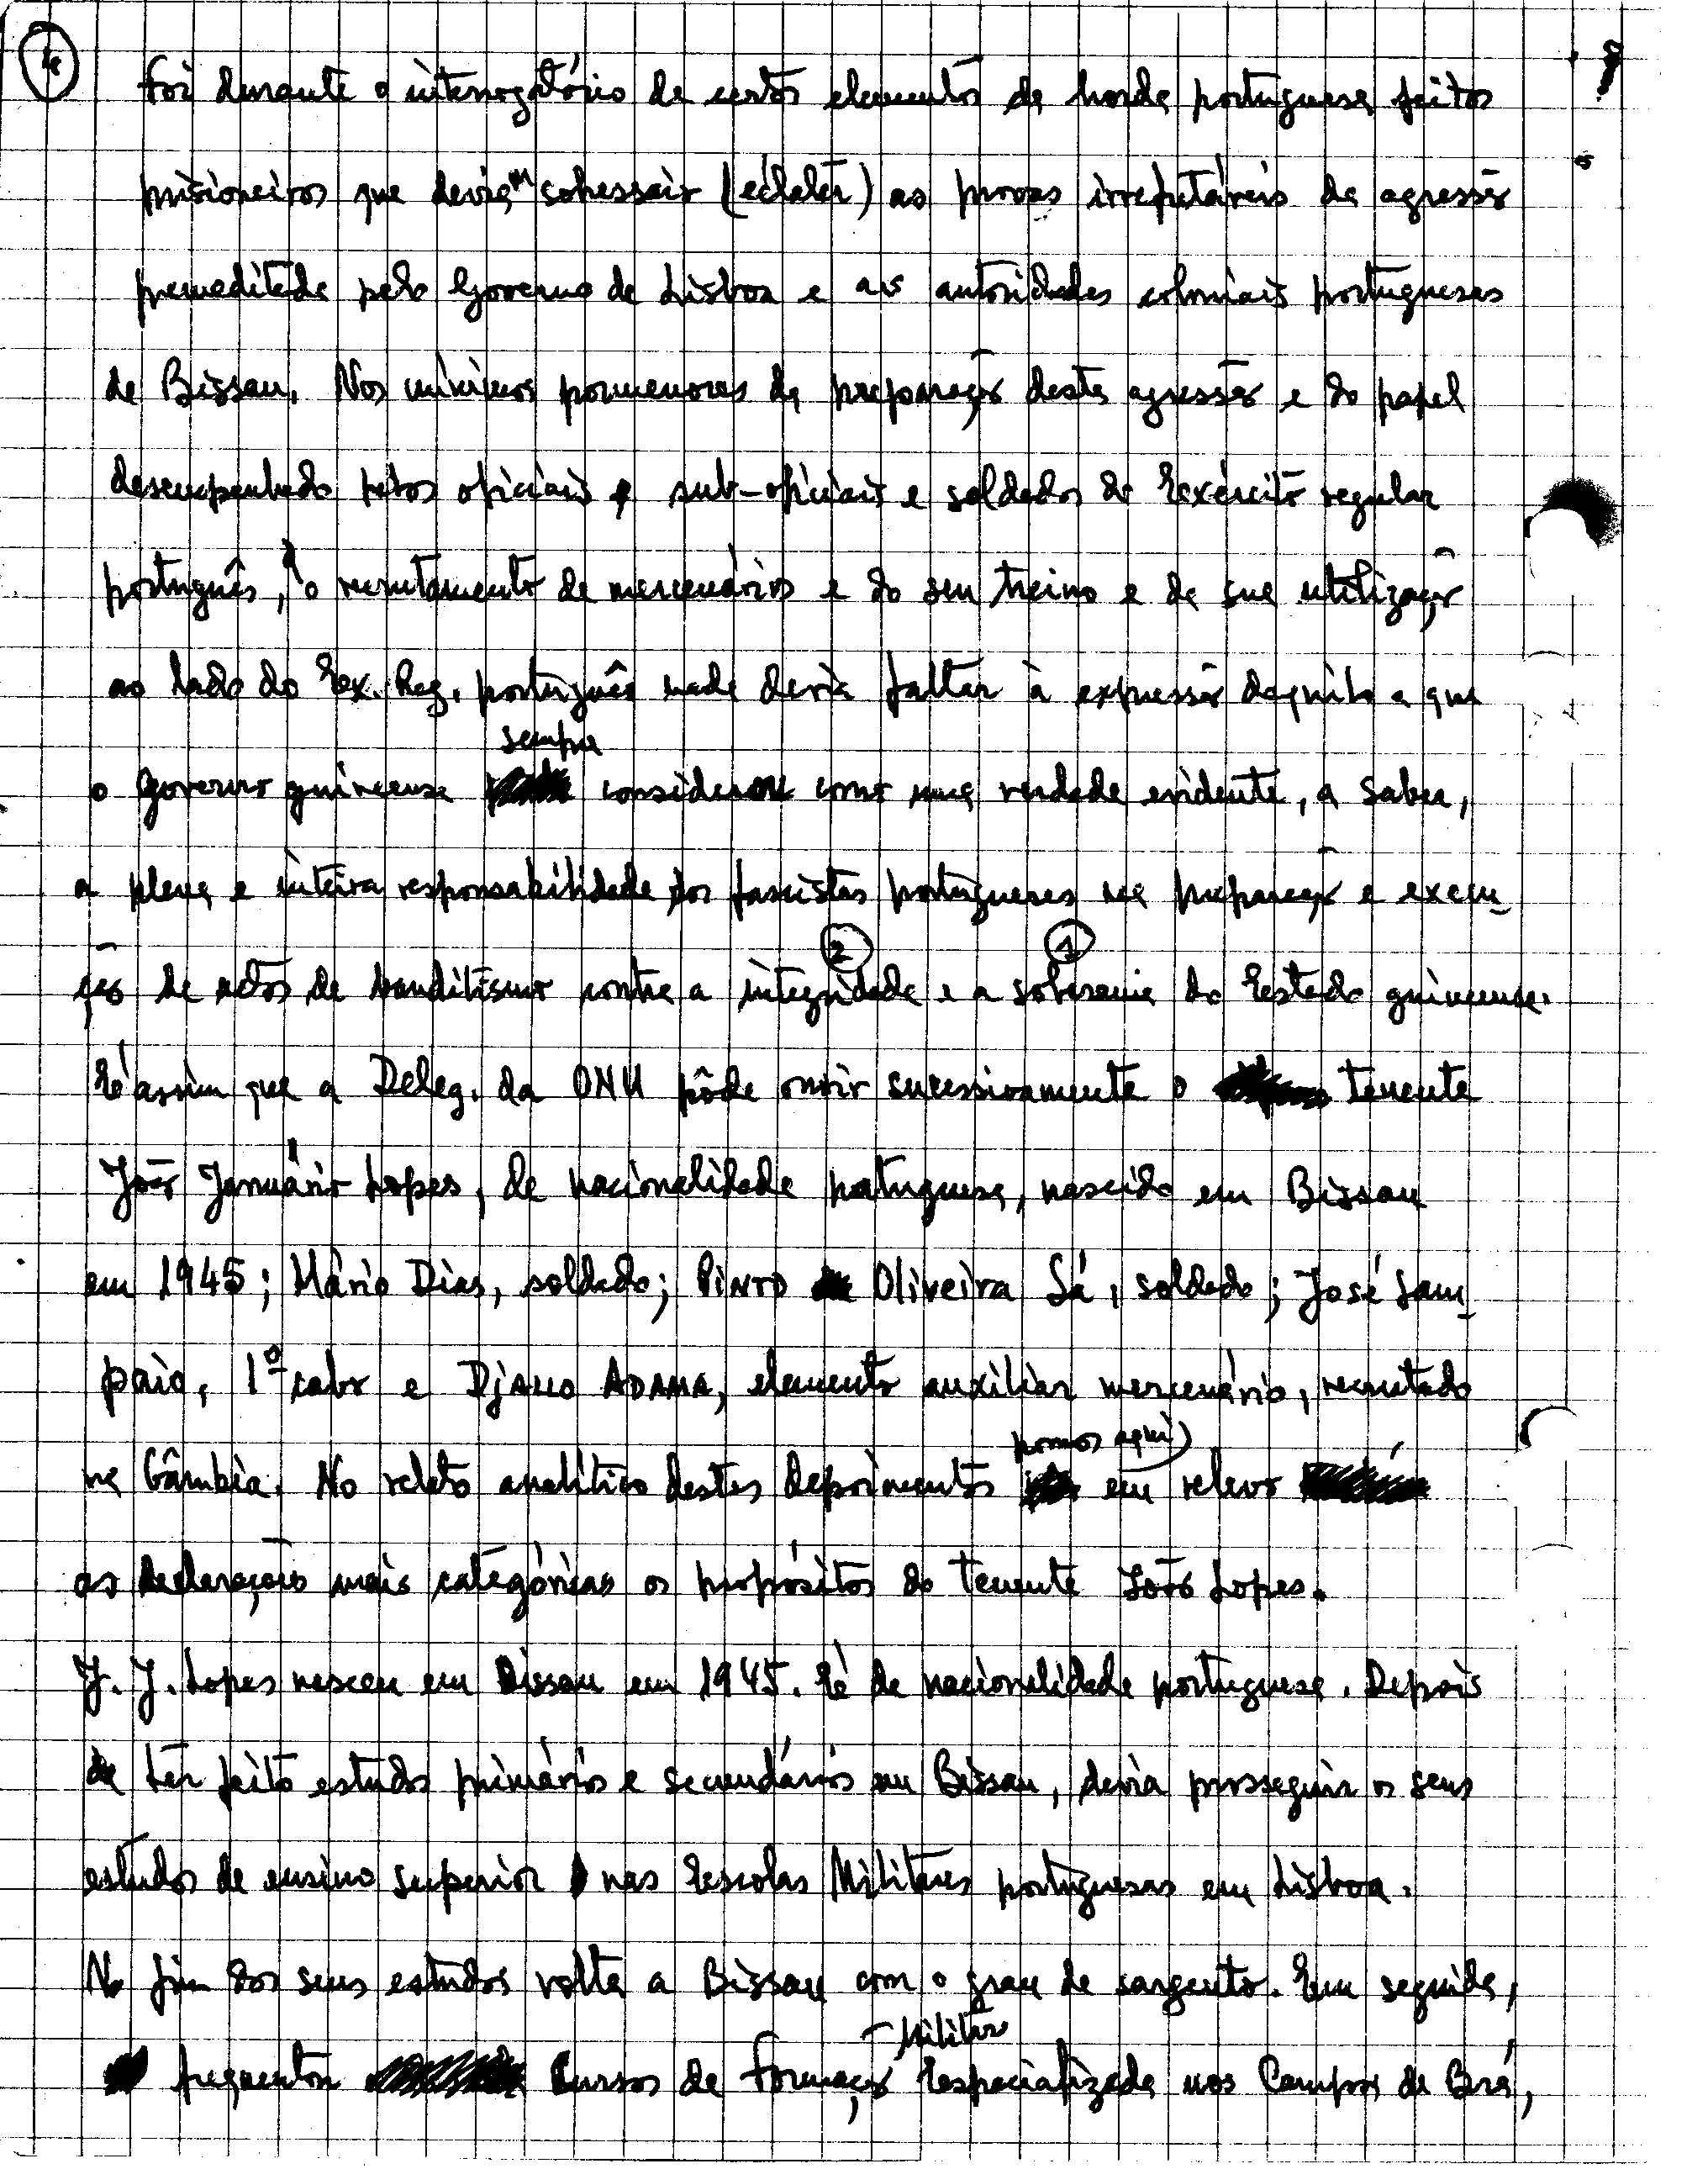 4
Foi durante o interrogatório de certos elementos da horda portuguesa feitos
prisioneiros que deviam sobressair (éclater) as provas irrefutáveis da agressão
premeditada pelo Governo de Lisboa e as autoridades coloniais portuguesas
de Bissau. Nos mínimos pormenores da preparação desta agressão e do papel
desempenhado pelos oficiais e sub-oficiais e soldados do Exército regular
português, do recrutamento de mercenários e do seu treino e da sua utilização
ao lado do Ex. Reg. português nada devia faltar à expressão daquilo a que
sempre
o governo guineense considerou como uma verdade evidente, a saber,
a plena e inteira responsabilidade dos fascistas portugueses na preparação e execu-
2 1
ção de actos de banditismo contra a integridade e a soberania do Estado guineense.
É assim que a Deleg. da ONU pôde ouvir sucessivamente o tenente
João Januário Lopes, de nacionalidade portuguesa, nascido em Bissau
em 1945; Mário Dias, soldado; PINTO Oliveira Sá, soldado; José Sam-
paio, 1º cabo e DJALLO ADAMA, elemento auxiliar mercenário, recrutado
pomos aqui
na Gâmbia. No relato analítico destes depoimentos em relevo
as declarações mais categóricas os propósitos do tenente João Lopes.
J. J. Lopes nasceu em Bissau em 1945. É de nacionalidade portuguesa. Depois
de ter feito estudos primários e secundários em Bissau, devia prosseguir os seus
estudos de ensino superior nas Escolas Militares portuguesas em Lisboa.
No fim dos seus estudos volta a Bissau com o grau de sargento. Em seguida,
Militar
frequentou Cursos de Formação Especializada nos Campos de Brá,